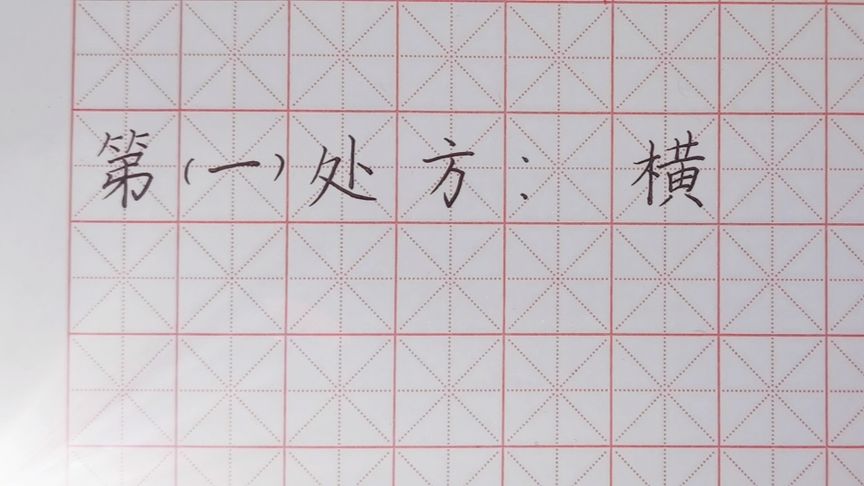 第(一)处方: 横